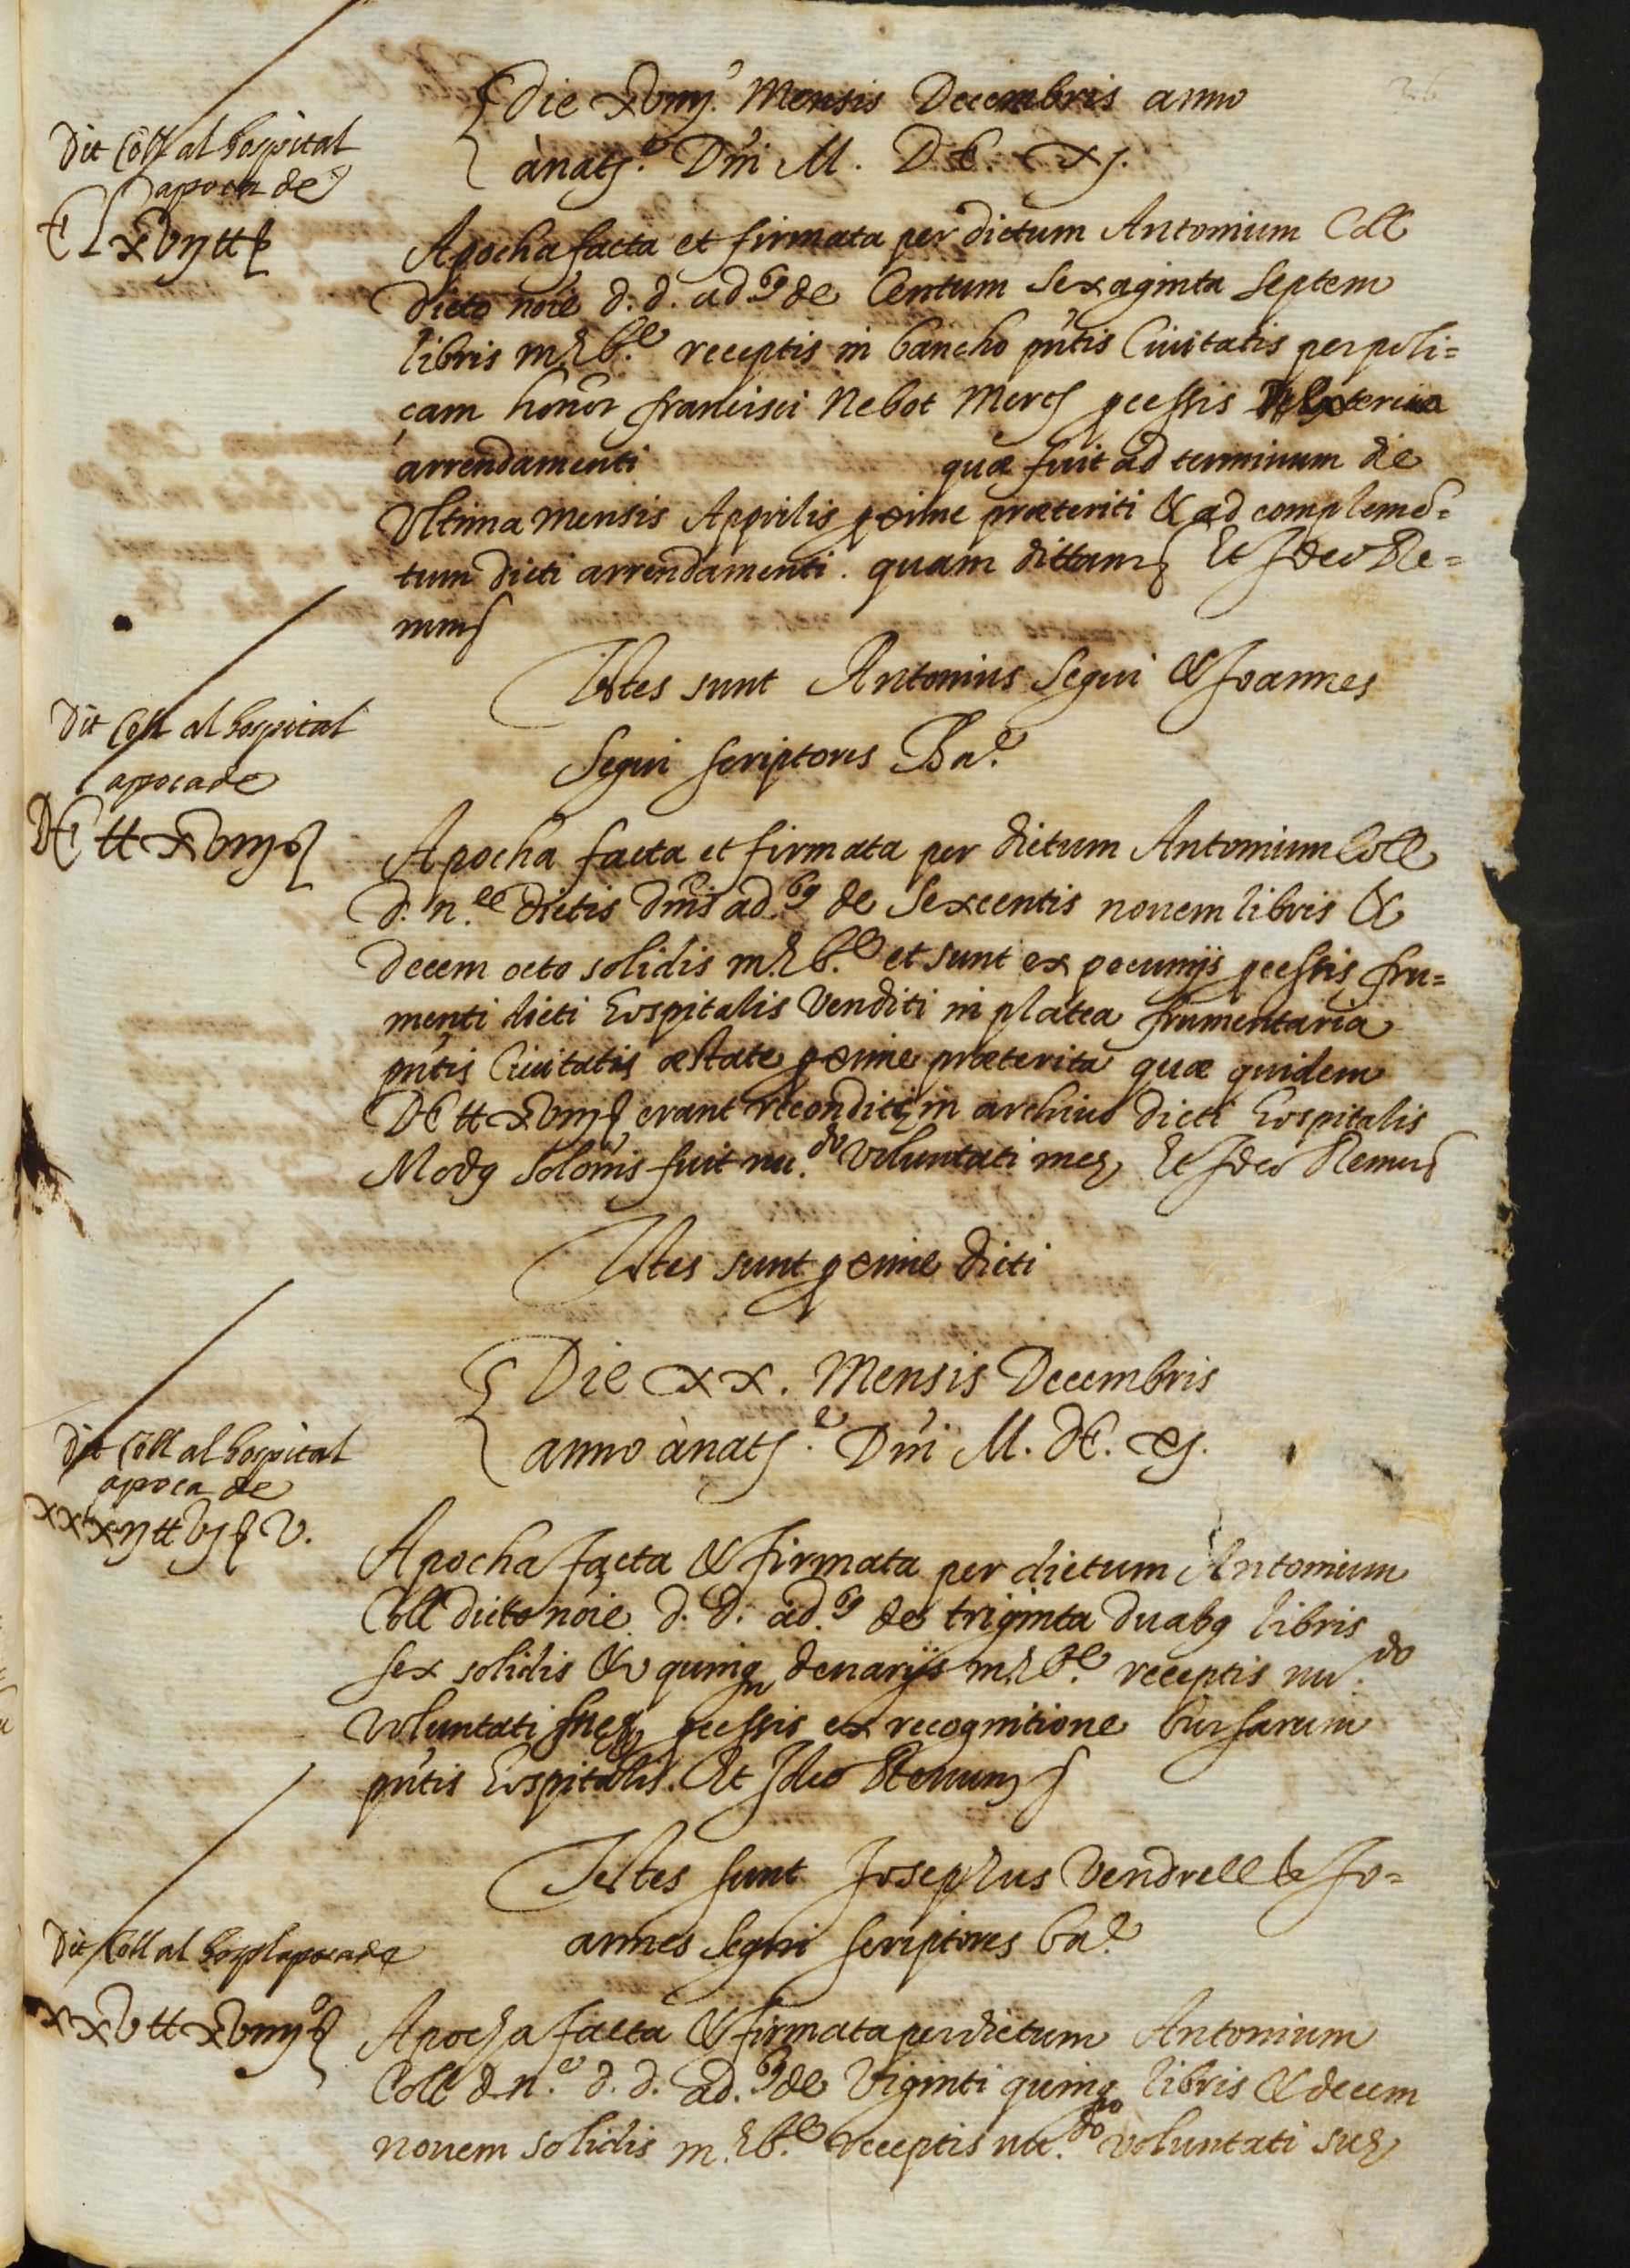 26
Die xviiij. Mensis Decembris anno
à natte. Dni M. DC. xj.
Dit Coll al hospital
apoca de
CLxvij tt ß
Apocha facta et firmata per dictum Antonium Coll
dicto noie d. d. ad.bus de Centum Sexaginta septem
libris m. Be. receptis in bancho pntis Ciuitatis per poli=
çam honor francisci Nebot Merc. pcessis
arrendamenti quæ fuit ad terminum die
Vltima mensis Apprilis pxime præteriti & ad complemē=
tum dicti arrendamenti. quam dittam Et Ideo Re=
nuns
Testes sunt Antonius Segui & Joannes
Segui scriptores Bne.
Dit Coll al hospital
apoca de
DC tt xviiij ß
Apocha facta et firmata per dictum Antonium Coll
d. n.e dictis dnis ad.bus de Sexcentis nouem libris &
decem octo solidis m. Be. et sunt ex pecunijs pcessis fru=
menti dicti Hospitalis Venditi in platea frumentaria
pntis Ciuitatis æstate pxime præterita quæ quidem
DC tt xviij ß erant recondite in archiuo dicti Hospitalis
Modus solonis fuit nu.do voluntati mee Et Ideo Renuns
Testes sunt pxime dicti
Die xx. Mensis Decembris
anno à natte. Dni M. DC. xj.
Dit Coll al hospital
apoca de
xxxij tt vj ß v.
Apocha facta & firmata per dictum Antonium
Coll dicto noie d. d. ad.bus de triginta duabus libris
sex solidis & quinq denarijs m. Be. receptis nu.do
voluntati suæ pcessis ex recognitione bursarum
pntis Hospitalis. Et Ideo Renuns
Testes sunt Josephus Vendrell & Jo=
annes Segui scriptores Bne.
Dit Coll al hospl apoca de
xxv tt xviiij ß
Apocha facta & firmata per dictum Antonium
Coll d. n.e d. d. ad.bus de Viginti quinq libris & decem
nouem solidis m. Be. receptis nu.do voluntati suæ